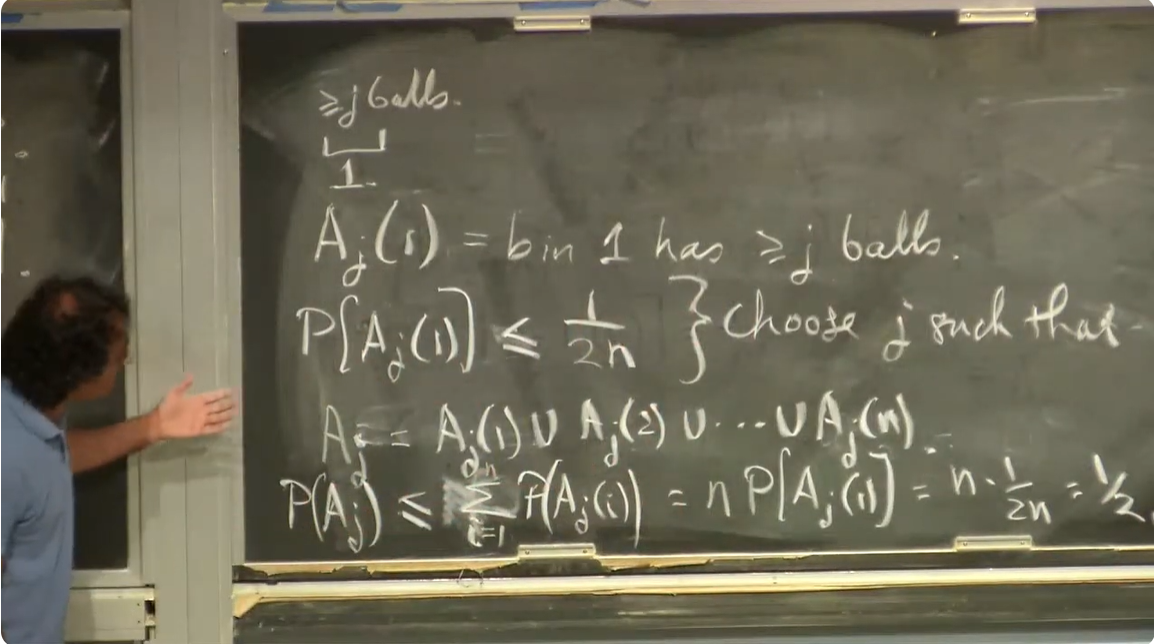 ≥j balls.
1.
A_j(1) = bin 1 has ≥j balls.
P[A_j(1)] ≤ 1/2n } Choose j such that
A_j = A_j(1) ∪ A_j(2) ∪ ... ∪ A_j(n).
P(A_j) ≤ ∑_{i=1}^{n} P(A_j(i)) = n P[A_j(1)] = n · 1/2n = 1/2.